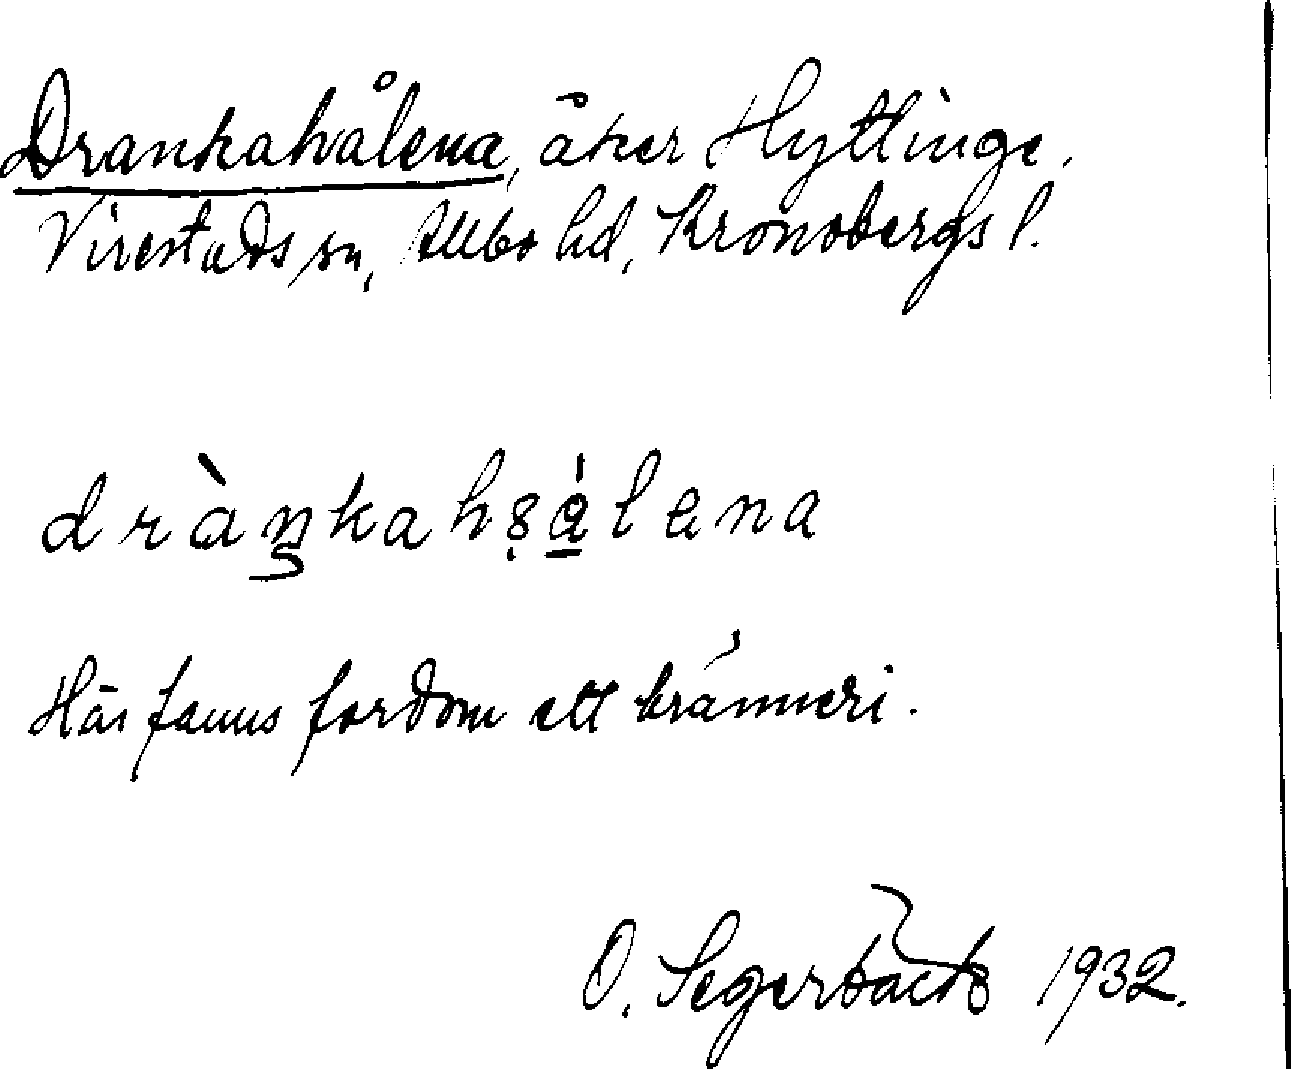 Drankahålena, åker Hyttinge,
Virestads sn, Allbo hd, Kronobergs l.
dràŋkahạ̊́lena
Här fanns fordom ett bränneri.
O. Segerbäck 1932.